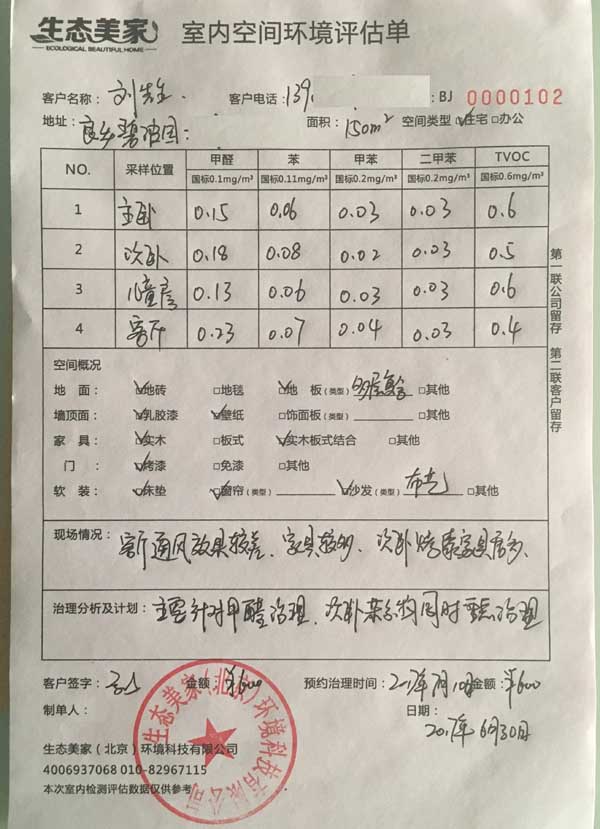 生态美家 室内空间环境评估单
ECOLOGICAL BEAUTIFUL HOME
客户名称：刘先生 客户电话：139 ：BJ 0000102
地址：良乡碧波园： 面积：150m² 空间类型 ☑住宅 □办公
NO. 采样位置 甲醛 苯 甲苯 二甲苯 TVOC
国标0.1mg/m³ 国标0.11mg/m³ 国标0.2mg/m³ 国标0.2mg/m³ 国标0.6mg/m³
1 主卧 0.15 0.06 0.03 0.03 0.6
2 次卧 0.18 0.08 0.02 0.03 0.5
3 儿童房 0.13 0.06 0.03 0.03 0.6
4 客厅 0.23 0.07 0.04 0.03 0.4
第一联公司留存 第二联客户留存
空间概况
地 面： ☑地砖 □地毯 ☑地 板（类型）多层复合 □其他
墙顶面： ☑乳胶漆 ☑壁纸 □饰面板（类型） □其他
家 具： ☑实木 □板式 ☑实木板式结合 □其他
门： ☑烤漆 □免漆 □其他
软 装： ☑床垫 ☑窗帘（类型） ☑沙发（类型）布艺 □其他
现场情况： 客厅通风效果较差、家具较多、次卧烤漆家具居多、
治理分析及计划： 主要针对甲醛治理、次卧苯系物同时重点治理
客户签字： 金额：¥600 预约治理时间：2017年7月10日 金额：¥600
制单人： 日期：
2017年6月30日
生态美家（北京）环境科技有限公司
4006937068 010-82967115
本次室内检测评估数据仅供参考
生态美家（北京）环境科技有限公司